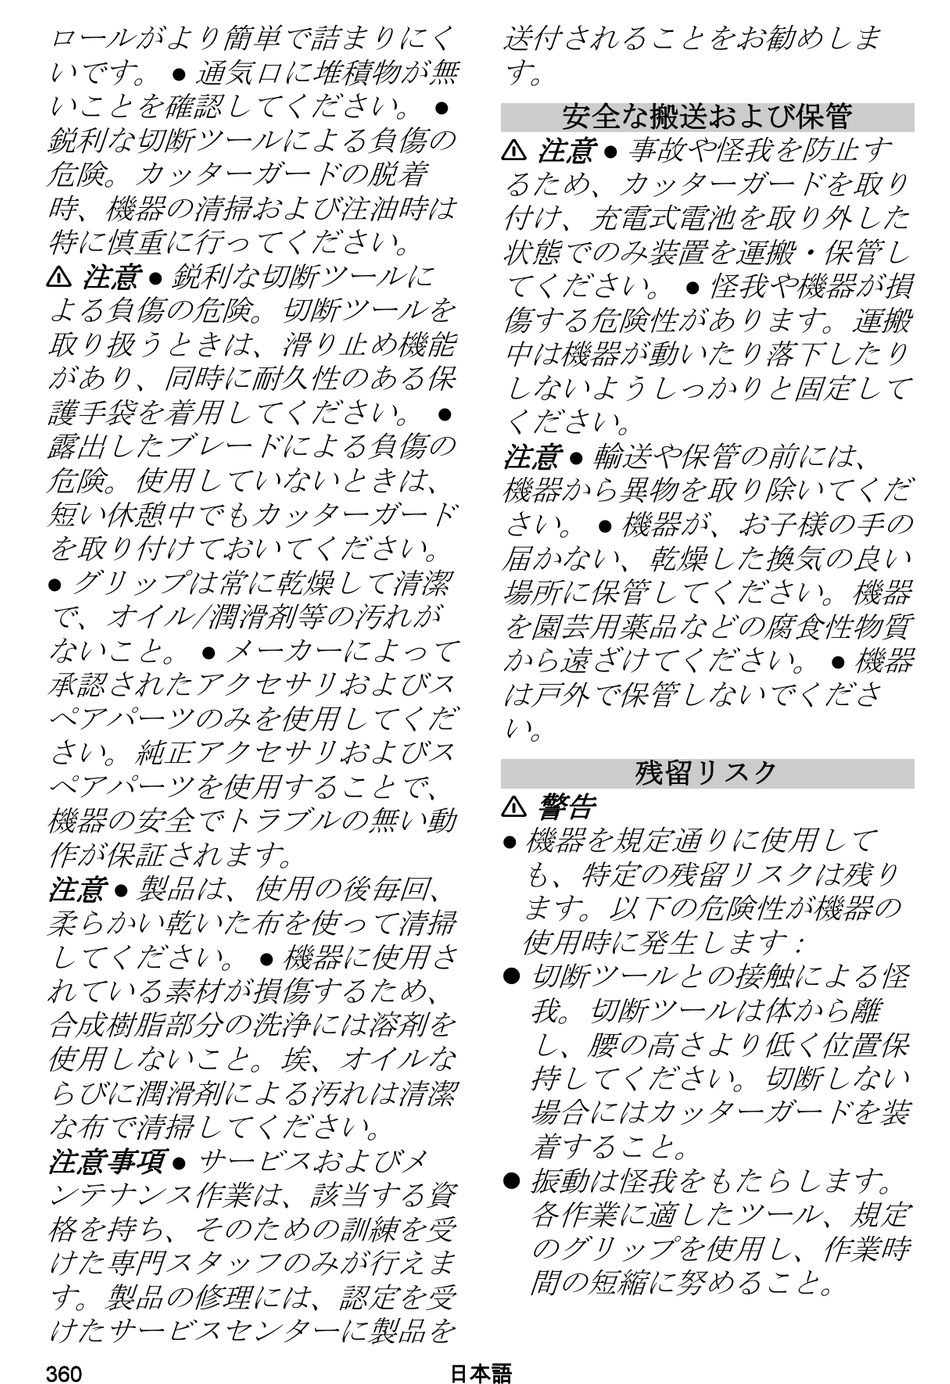 ロールがより簡単で詰まりにく
いです。 ● 通気口に堆積物が無
いことを確認してください。 ●
鋭利な切断ツールによる負傷の
危険。カッターガードの脱着
時、機器の清掃および注油時は
特に慎重に行ってください。
⚠ 注意 ● 鋭利な切断ツールに
よる負傷の危険。切断ツールを
取り扱うときは、滑り止め機能
があり、同時に耐久性のある保
護手袋を着用してください。 ●
露出したブレードによる負傷の
危険。使用していないときは、
短い休憩中でもカッターガード
を取り付けておいてください。
● グリップは常に乾燥して清潔
で、オイル/潤滑剤等の汚れが
ないこと。 ● メーカーによって
承認されたアクセサリおよびス
ペアパーツのみを使用してくだ
さい。純正アクセサリおよびス
ペアパーツを使用することで、
機器の安全でトラブルの無い動
作が保証されます。
注意 ● 製品は、使用の後毎回、
柔らかい乾いた布を使って清掃
してください。 ● 機器に使用さ
れている素材が損傷するため、
合成樹脂部分の洗浄には溶剤を
使用しないこと。埃、オイルな
らびに潤滑剤による汚れは清潔
な布で清掃してください。
注意事項 ● サービスおよびメ
ンテナンス作業は、該当する資
格を持ち、そのための訓練を受
けた専門スタッフのみが行えま
す。製品の修理には、認定を受
けたサービスセンターに製品を
送付されることをお勧めしま
す。
安全な搬送および保管
⚠ 注意 ● 事故や怪我を防止す
るため、カッターガードを取り
付け、充電式電池を取り外した
状態でのみ装置を運搬・保管し
てください。 ● 怪我や機器が損
傷する危険性があります。運搬
中は機器が動いたり落下したり
しないようしっかりと固定して
ください。
注意 ● 輸送や保管の前には、
機器から異物を取り除いてくだ
さい。 ● 機器が、お子様の手の
届かない、乾燥した換気の良い
場所に保管してください。機器
を園芸用薬品などの腐食性物質
から遠ざけてください。 ● 機器
は戸外で保管しないでくださ
い。
残留リスク
⚠ 警告
● 機器を規定通りに使用して
も、特定の残留リスクは残り
ます。以下の危険性が機器の
使用時に発生します :
● 切断ツールとの接触による怪
我。切断ツールは体から離
し、腰の高さより低く位置保
持してください。切断しない
場合にはカッターガードを装
着すること。
● 振動は怪我をもたらします。
各作業に適したツール、規定
のグリップを使用し、作業時
間の短縮に努めること。
360
日本語